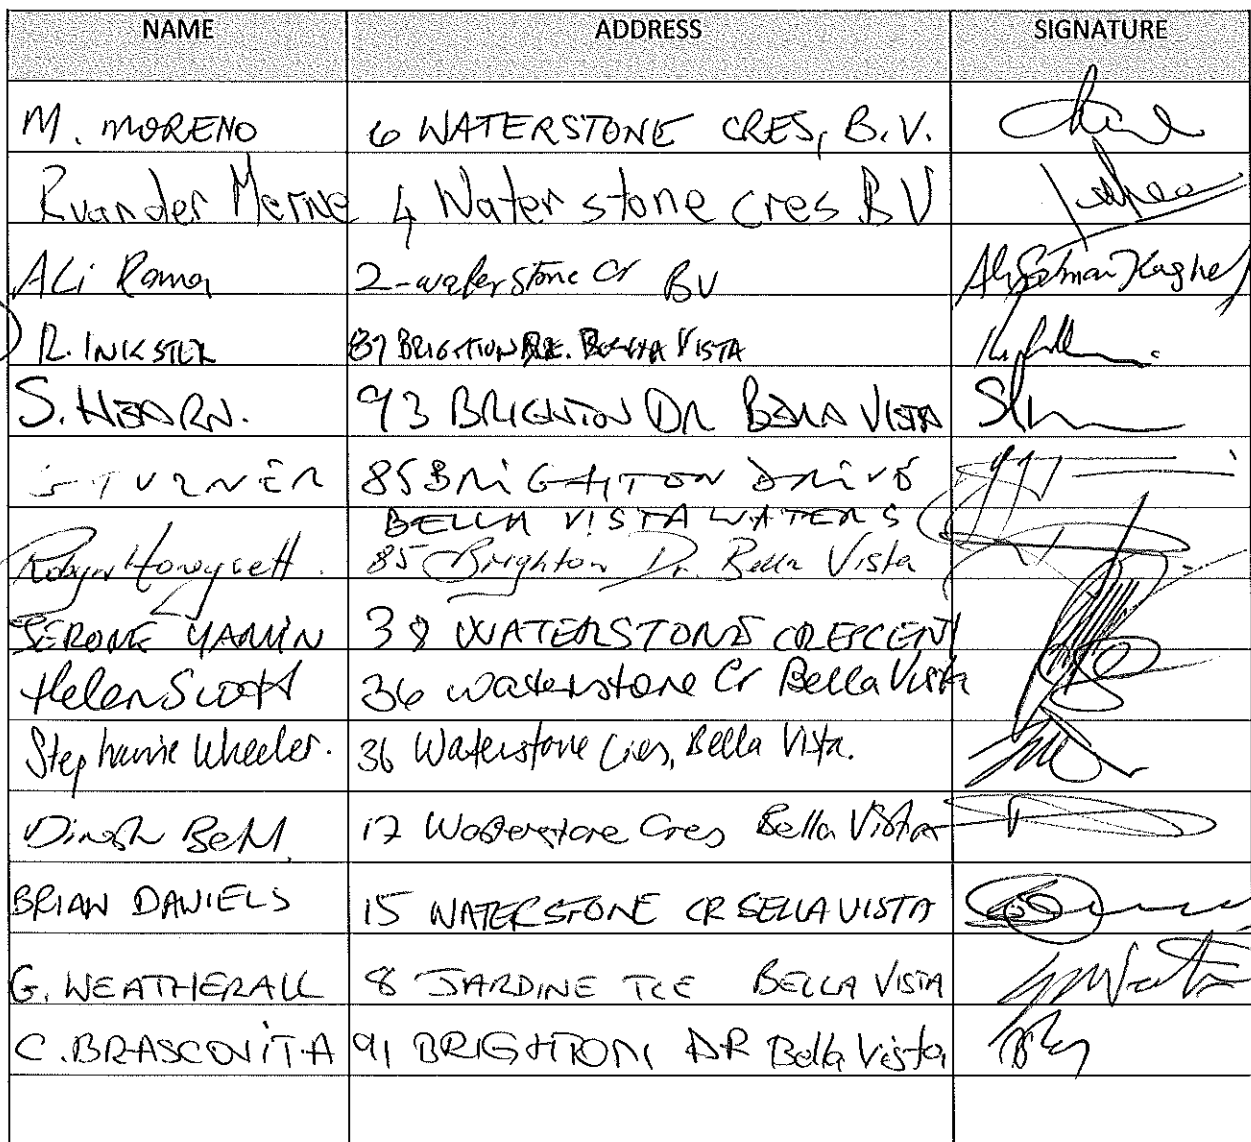 NAME ADDRESS SIGNATURE
M. MORENO 6 WATERSTONE CRES, B.V.
R van der Merwe 4 Waterstone cres BV
ALi Rama 2-waterstone Cr BV
R. INKSTER 87 BRIGHTON DVE. BELLA VISTA
S. HEARN. 93 BRIGHTON DR BELLA VISTA
TURNER 85 BRIGHTON DRIVE
BELLA VISTA WATERS
Robyn Honeysett. 85 Brighton Dr. Bella Vista
JEROME YAMIN 38 WATERSTONE CRESCENT
Helen Scott 36 Waterstone Cr Bella Vista
Stephanie Wheeler. 36 Waterstone Cres, Bella Vista.
Dinesh Behl. 17 Waterstone Cres Bella Vista
BRIAN DANIELS 15 WATERSTONE CR BELLA VISTA
G. WEATHERALL 8 JARDINE TCE BELLA VISTA
C. BRASCOVITA 91 BRIGHTON DR Bella Vista